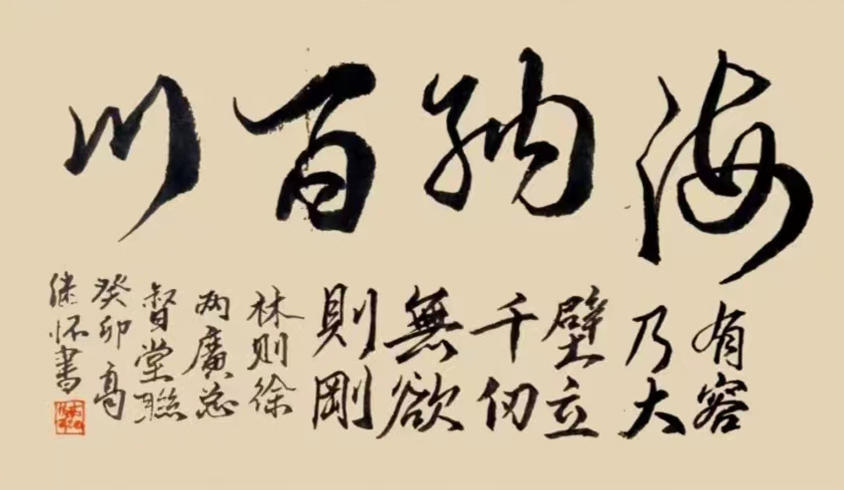 海納百川
有容
乃大
壁立
千仞
無欲
則剛
林則徐
兩廣總
督堂聯
癸卯高
继怀書